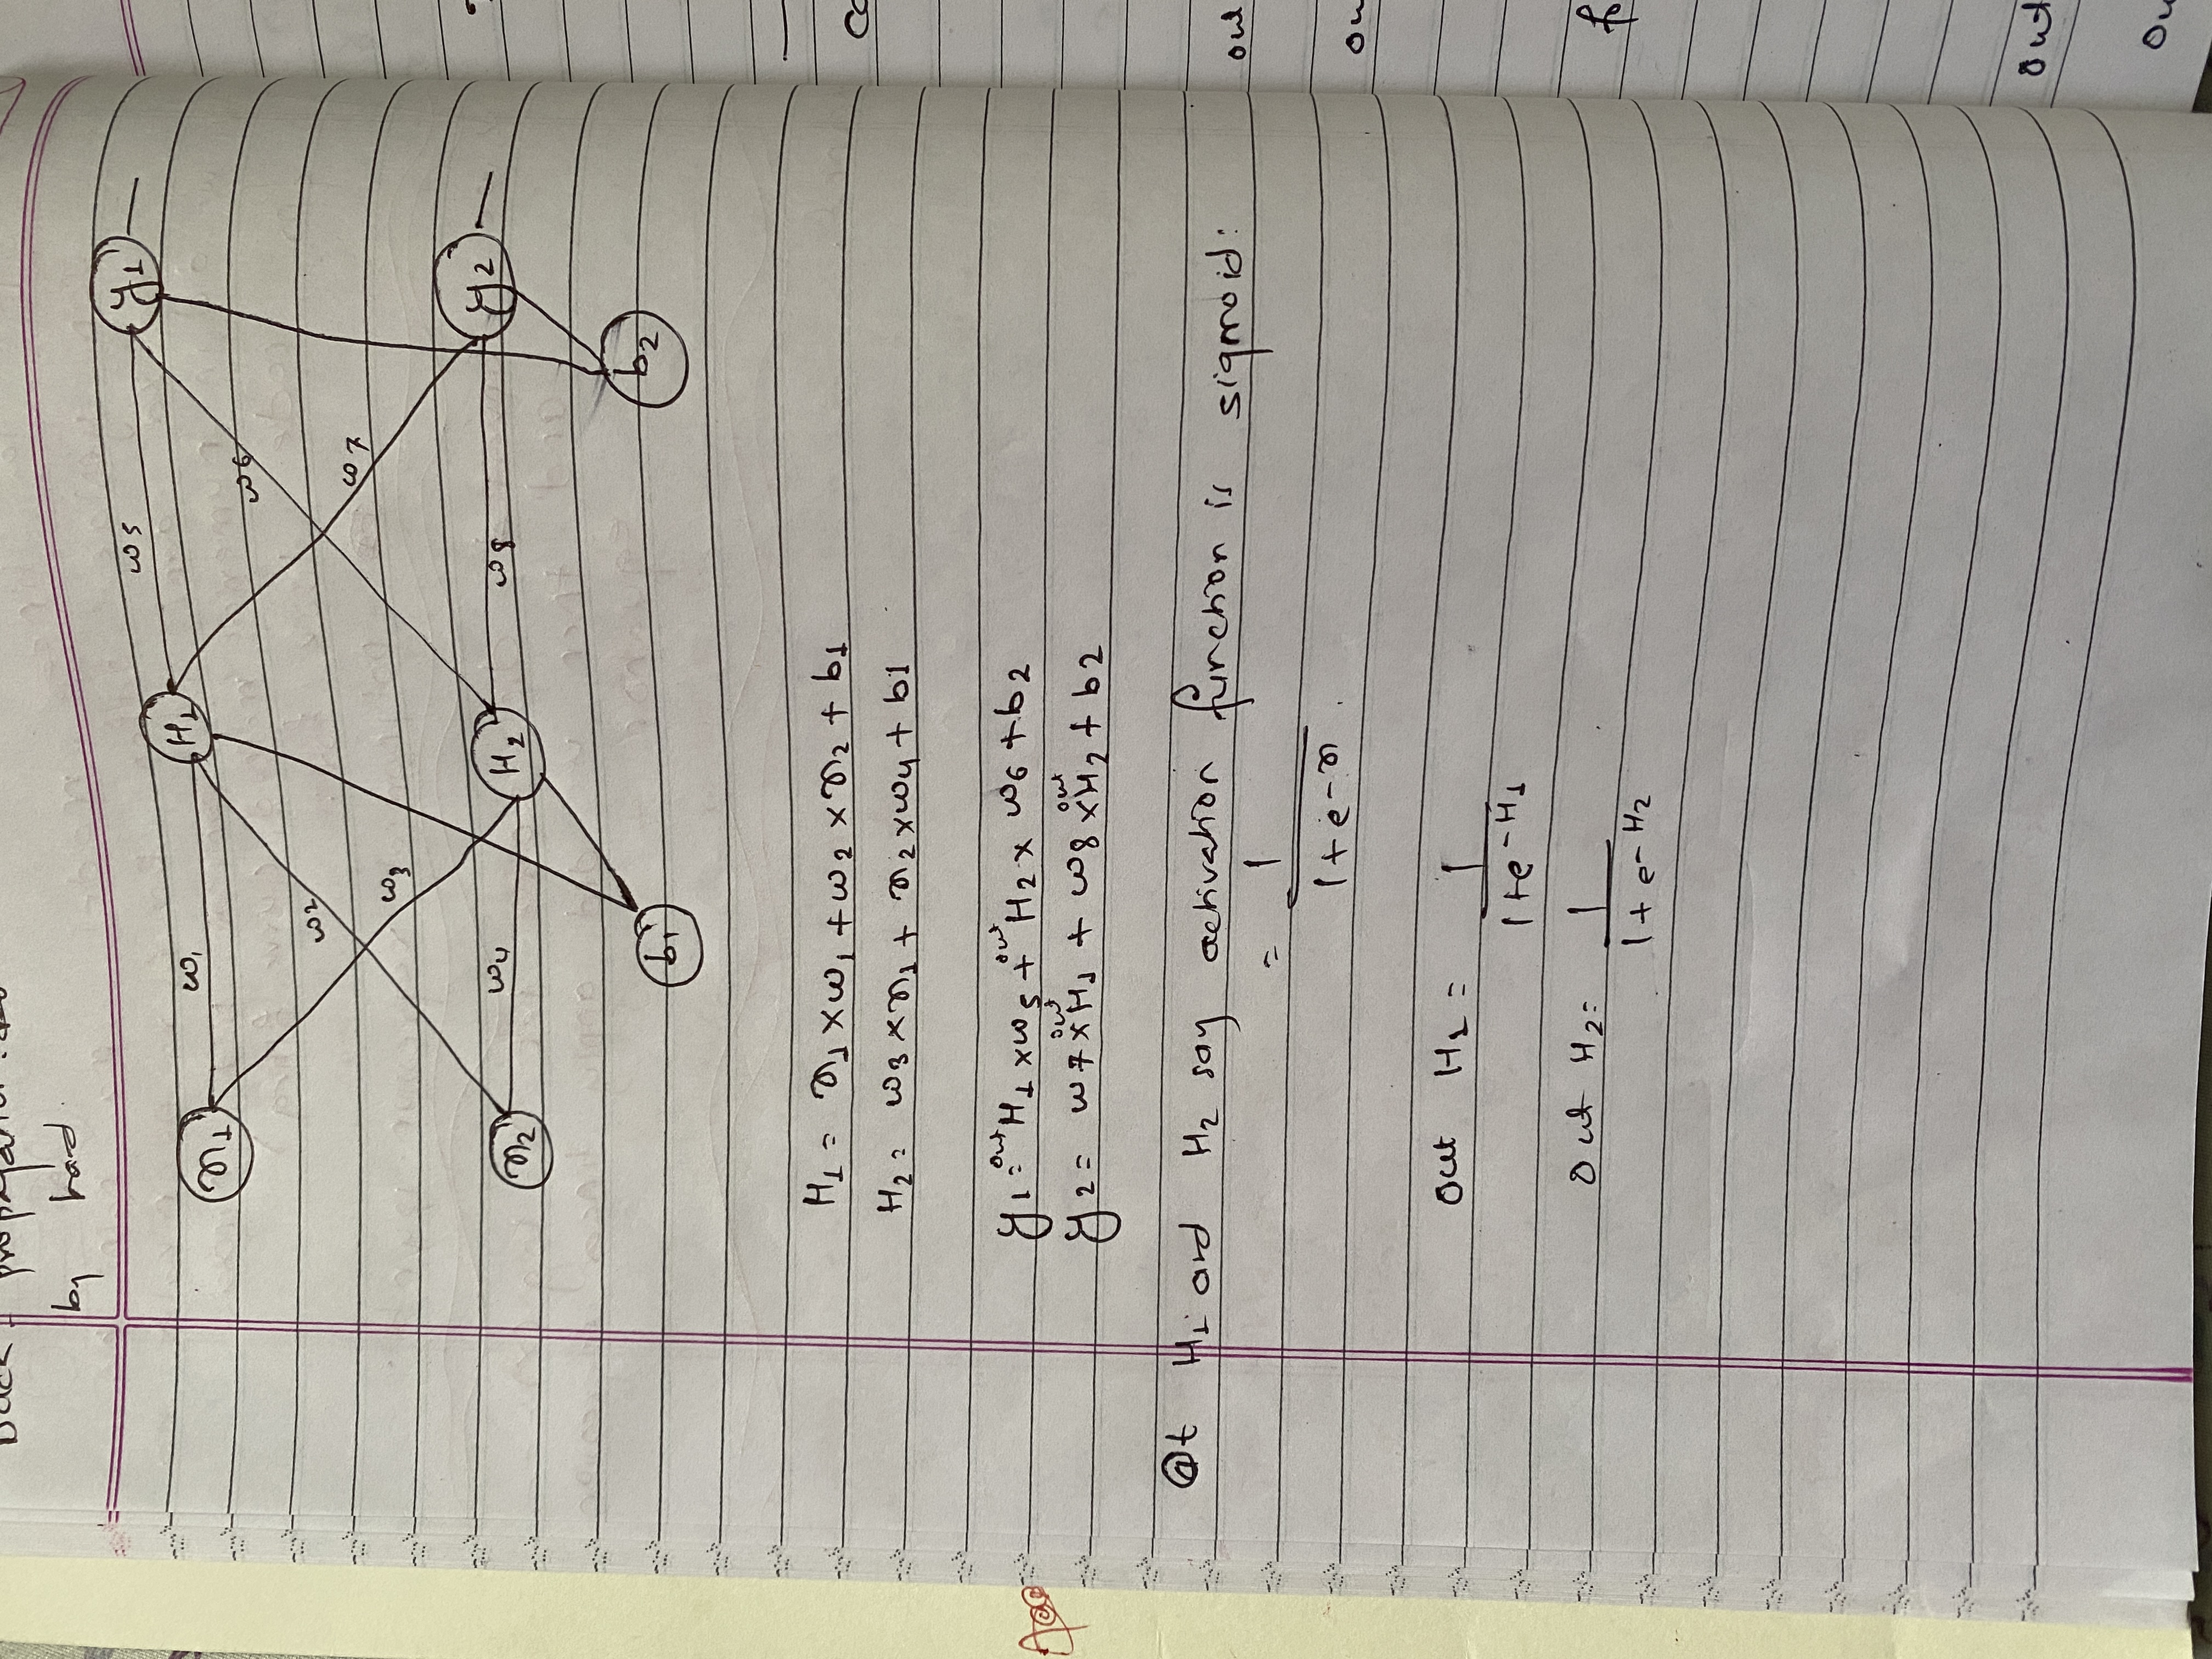 by hand
x1 w1 H1 w5 y1
w2 w6
w3 w7
x2 w4 H2 w8 y2
b1 b2
H1 = x1 × w1 + w2 × x2 + b1
H2 = w3 × x1 + x2 × w4 + b1
y1 = out H1 × w5 + out H2 × w6 + b2
y2 = w7 × out H1 + w8 × out H2 + b2
@t H1 and H2 say activation function is sigmoid:
= 1
1 + e-x.
Out H1 = 1
1+e-H1
Out H2 = 1
1 + e-H2
out
Out